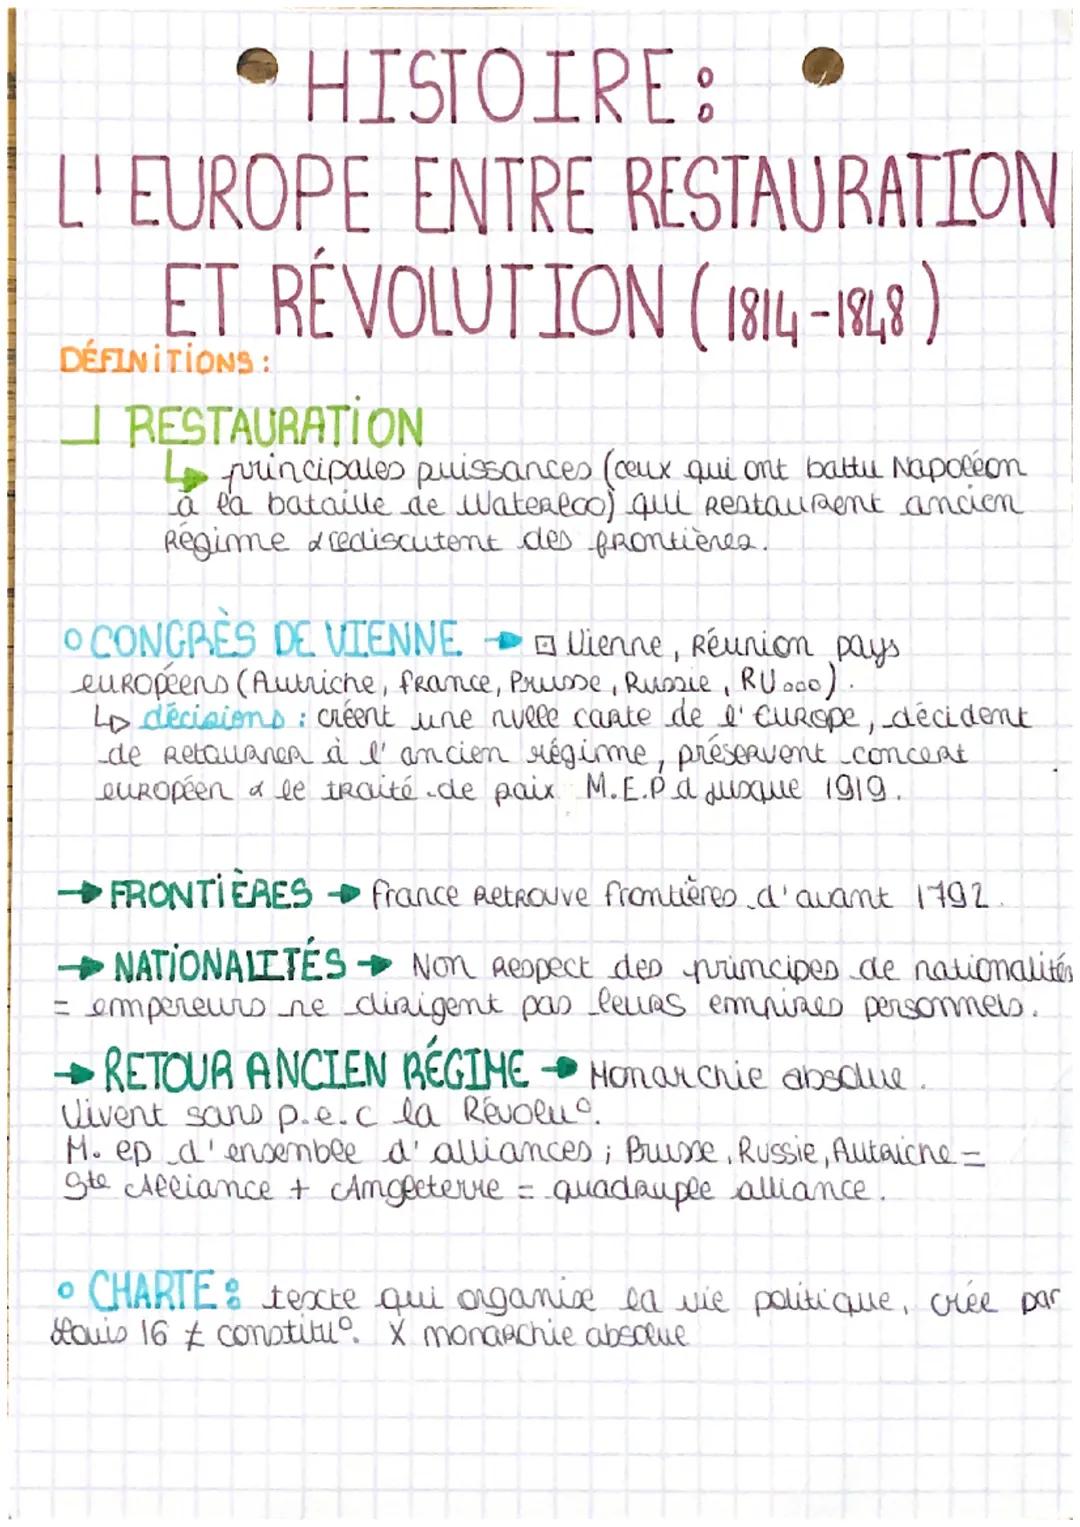 HISTOIRE :
L'EUROPE ENTRE RESTAURATION
ET RÉVOLUTION (1814-1848)
DÉFINITIONS :
RESTAURATION
↳ principales puissances (ceux qui ont battu Napoléon
à la bataille de Waterloo) qui restaurent ancien
Régime & rediscutent des frontières.
○ CONGRÈS DE VIENNE → ⊡ Vienne, Réunion pays
européens (Autriche, france, Prusse, Russie, RU...).
↳ décisions : créent une nvelle carte de l'Europe, décident
de retourner à l'ancien régime, préservent concert
européen & le traité de paix M.E.P d jusque 1919.
→ FRONTIÈRES → france retrouve frontières d'avant 1792.
→ NATIONALITÉS → Non respect des principes de nationalités
= empereurs ne dirigent pas leurs empires personnels.
→ RETOUR ANCIEN RÉGIME → Monarchie absolue.
Vivent sans p.e.c la Révolu°.
M. ep d'ensemble d'alliances ; Prusse, Russie, Autriche =
Ste Alliance + Angleterre = quadruple alliance.
○ CHARTE : texte qui organise la vie politique, crée par
Louis 16 ≠ constitu°. X monarchie absolue